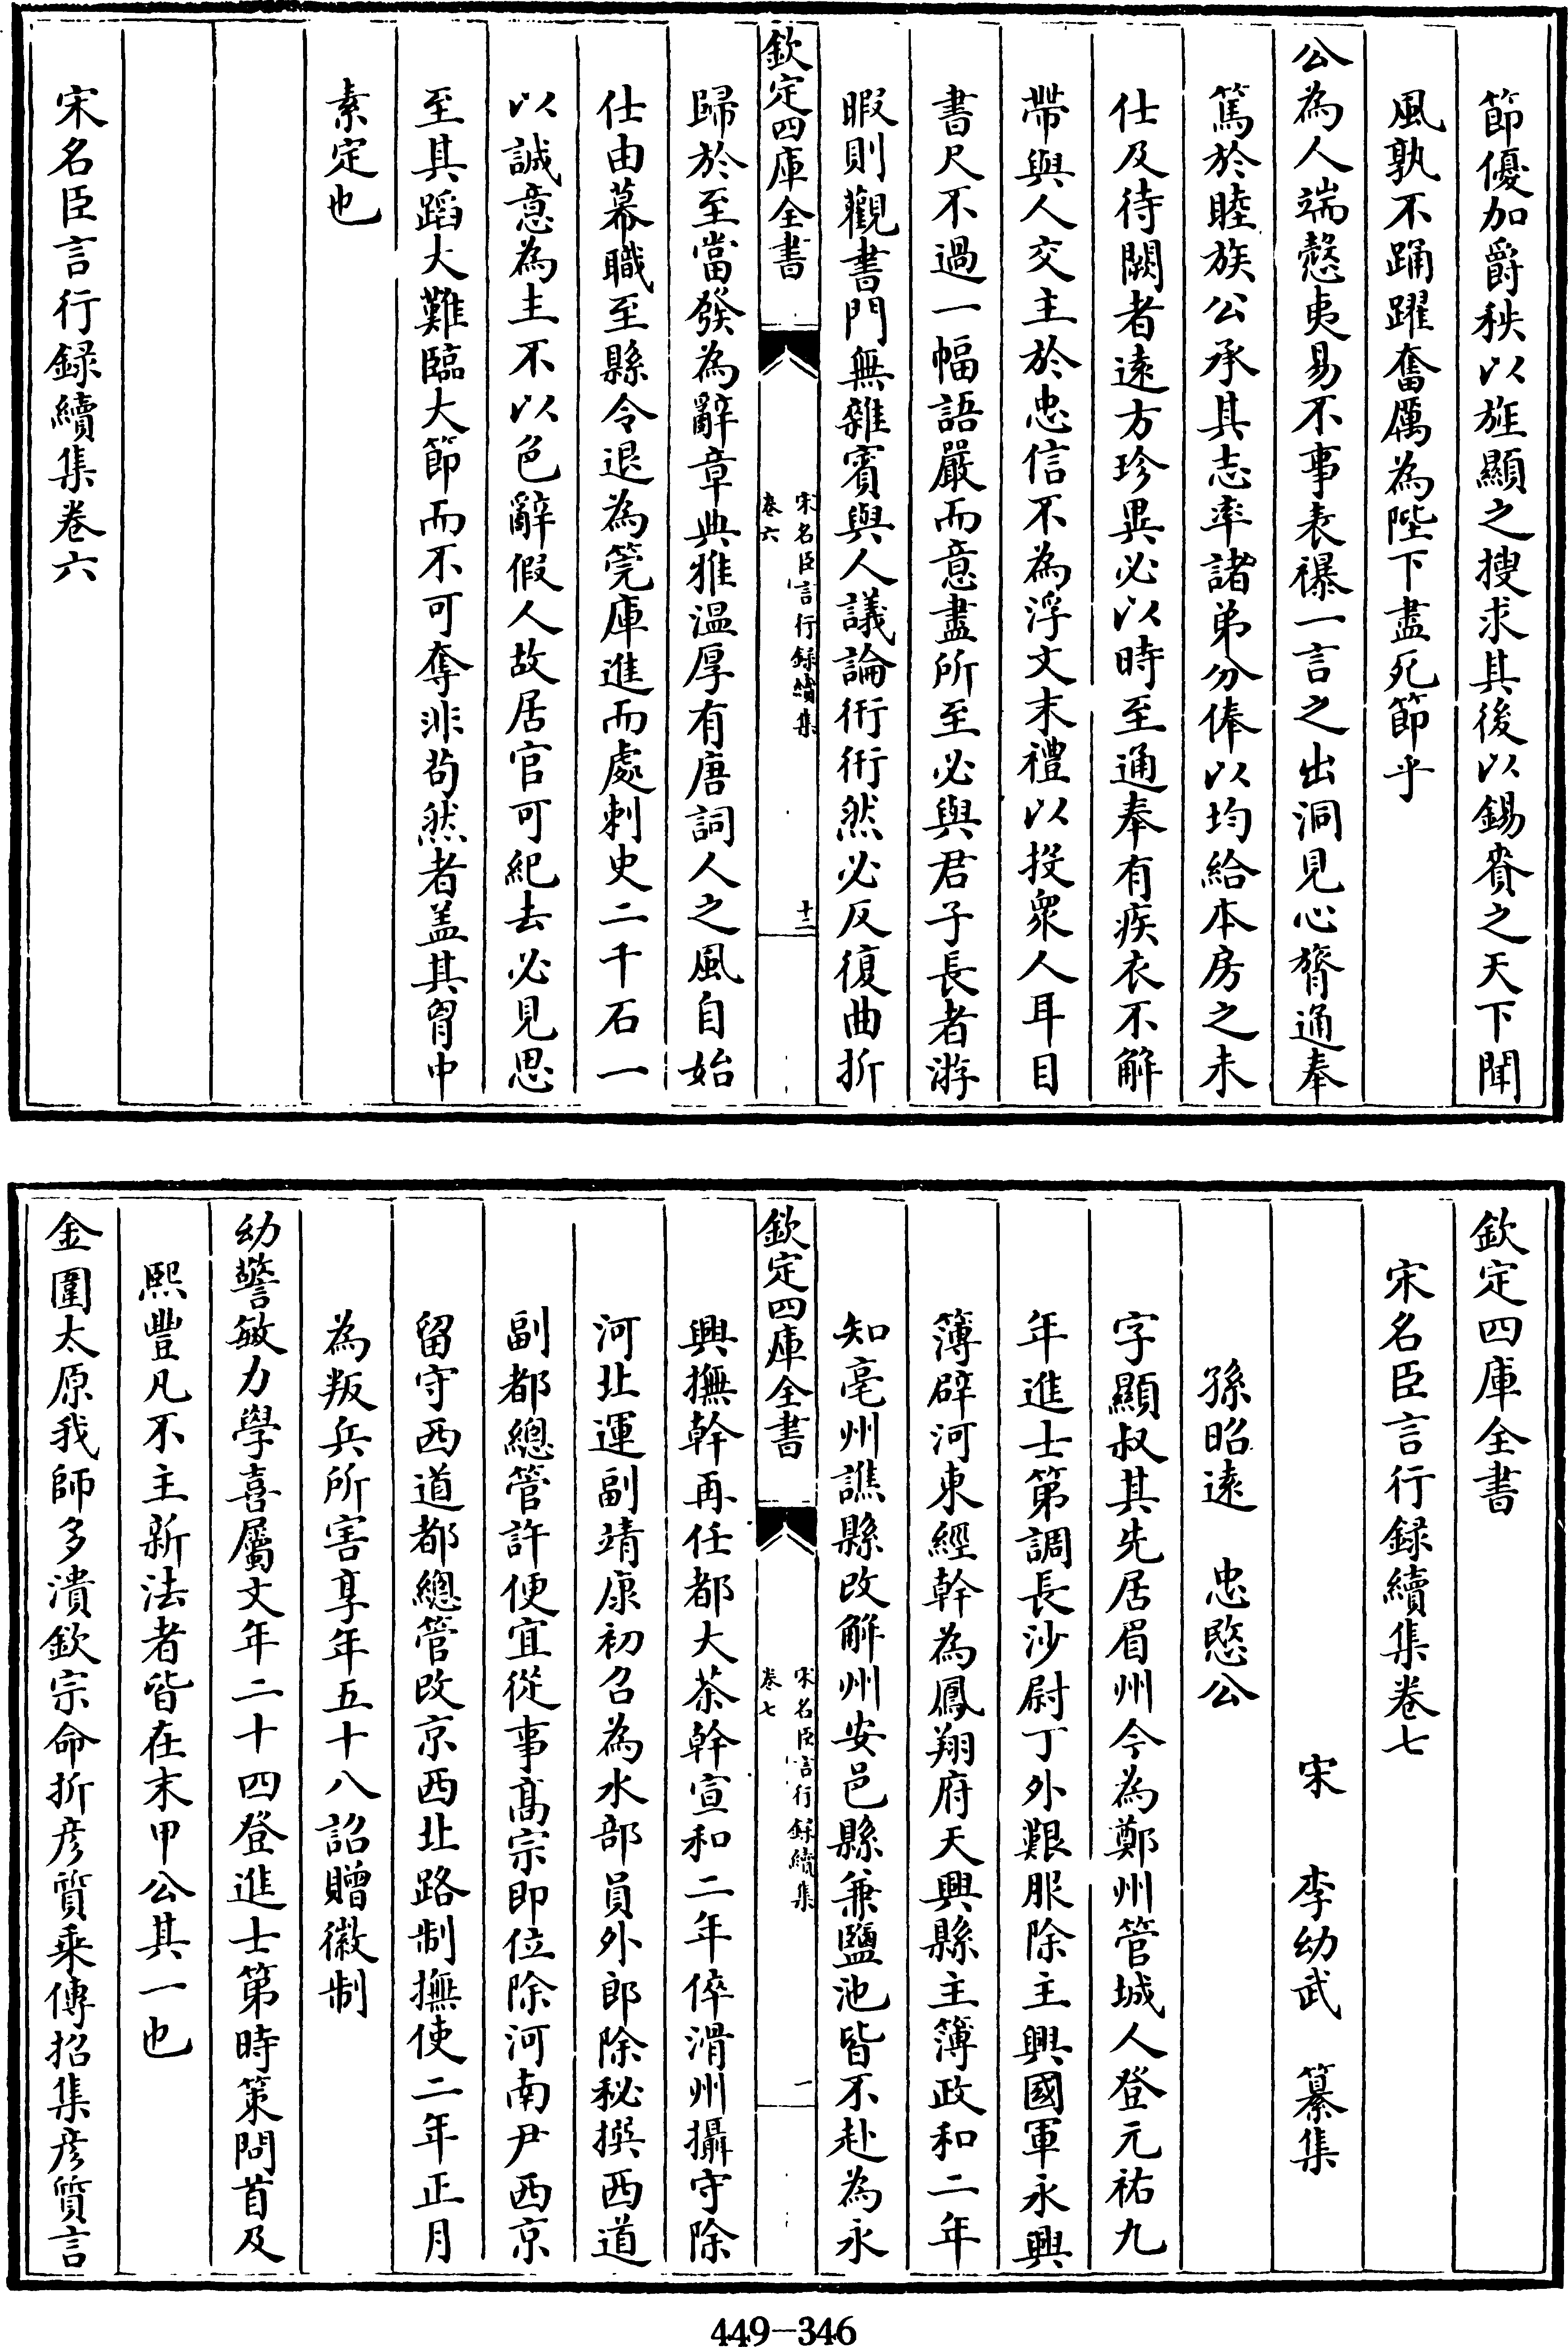 節優加爵秩以旌顯之搜求其後以錫賚之天下聞
風孰不踊躍奮厲為陛下盡死節乎
公為人端慤夷易不事表襮一言之出洞見心膂通奉
篤於睦族公承其志率諸弟分俸以均給本房之未
仕及待闕者遠方珍異必以時至通奉有疾衣不解
帶與人交主於忠信不為浮文末禮以投衆人耳目
書尺不過一幅語嚴而意盡所至必與君子長者游
暇則觀書門無雜賓與人議論衎衎然必反復曲折
欽定四庫全書
宋名臣言行録續集
卷六
十二
歸於至當發為辭章典雅温厚有唐詞人之風自始
仕由幕職至縣令退為筦庫進而處刺史二千石一
以誠意為主不以色辭假人故居官可紀去必見思
至其蹈大難臨大節而不可奪非茍然者盖其胷中
素定也
宋名臣言行録續集卷六
欽定四庫全書
宋名臣言行録續集卷七
宋 李幼武 纂集
孫昭遠 忠愍公
字顯叔其先居眉州今為鄭州管城人登元祐九
年進士第調長沙尉丁外艱服除主興國軍永興
簿辟河東經幹為鳳翔府天興縣主簿政和二年
知亳州譙縣改解州安邑縣兼鹽池皆不赴為永
欽定四庫全書
宋名臣言行録續集
卷七
一
興撫幹再任都大茶幹宣和二年倅滑州攝守除
河北運副靖康初召為水部員外郎除秘撰西道
副都總管許便宜從事髙宗即位除河南尹西京
留守西道都總管改京西北路制撫使二年正月
為叛兵所害享年五十八詔贈徽制
幼警敏力學喜屬文年二十四登進士第時策問首及
熙豐凡不主新法者皆在末甲公其一也
金圍太原我師多潰欽宗命折彦質乗傳招集彦質言
449－346